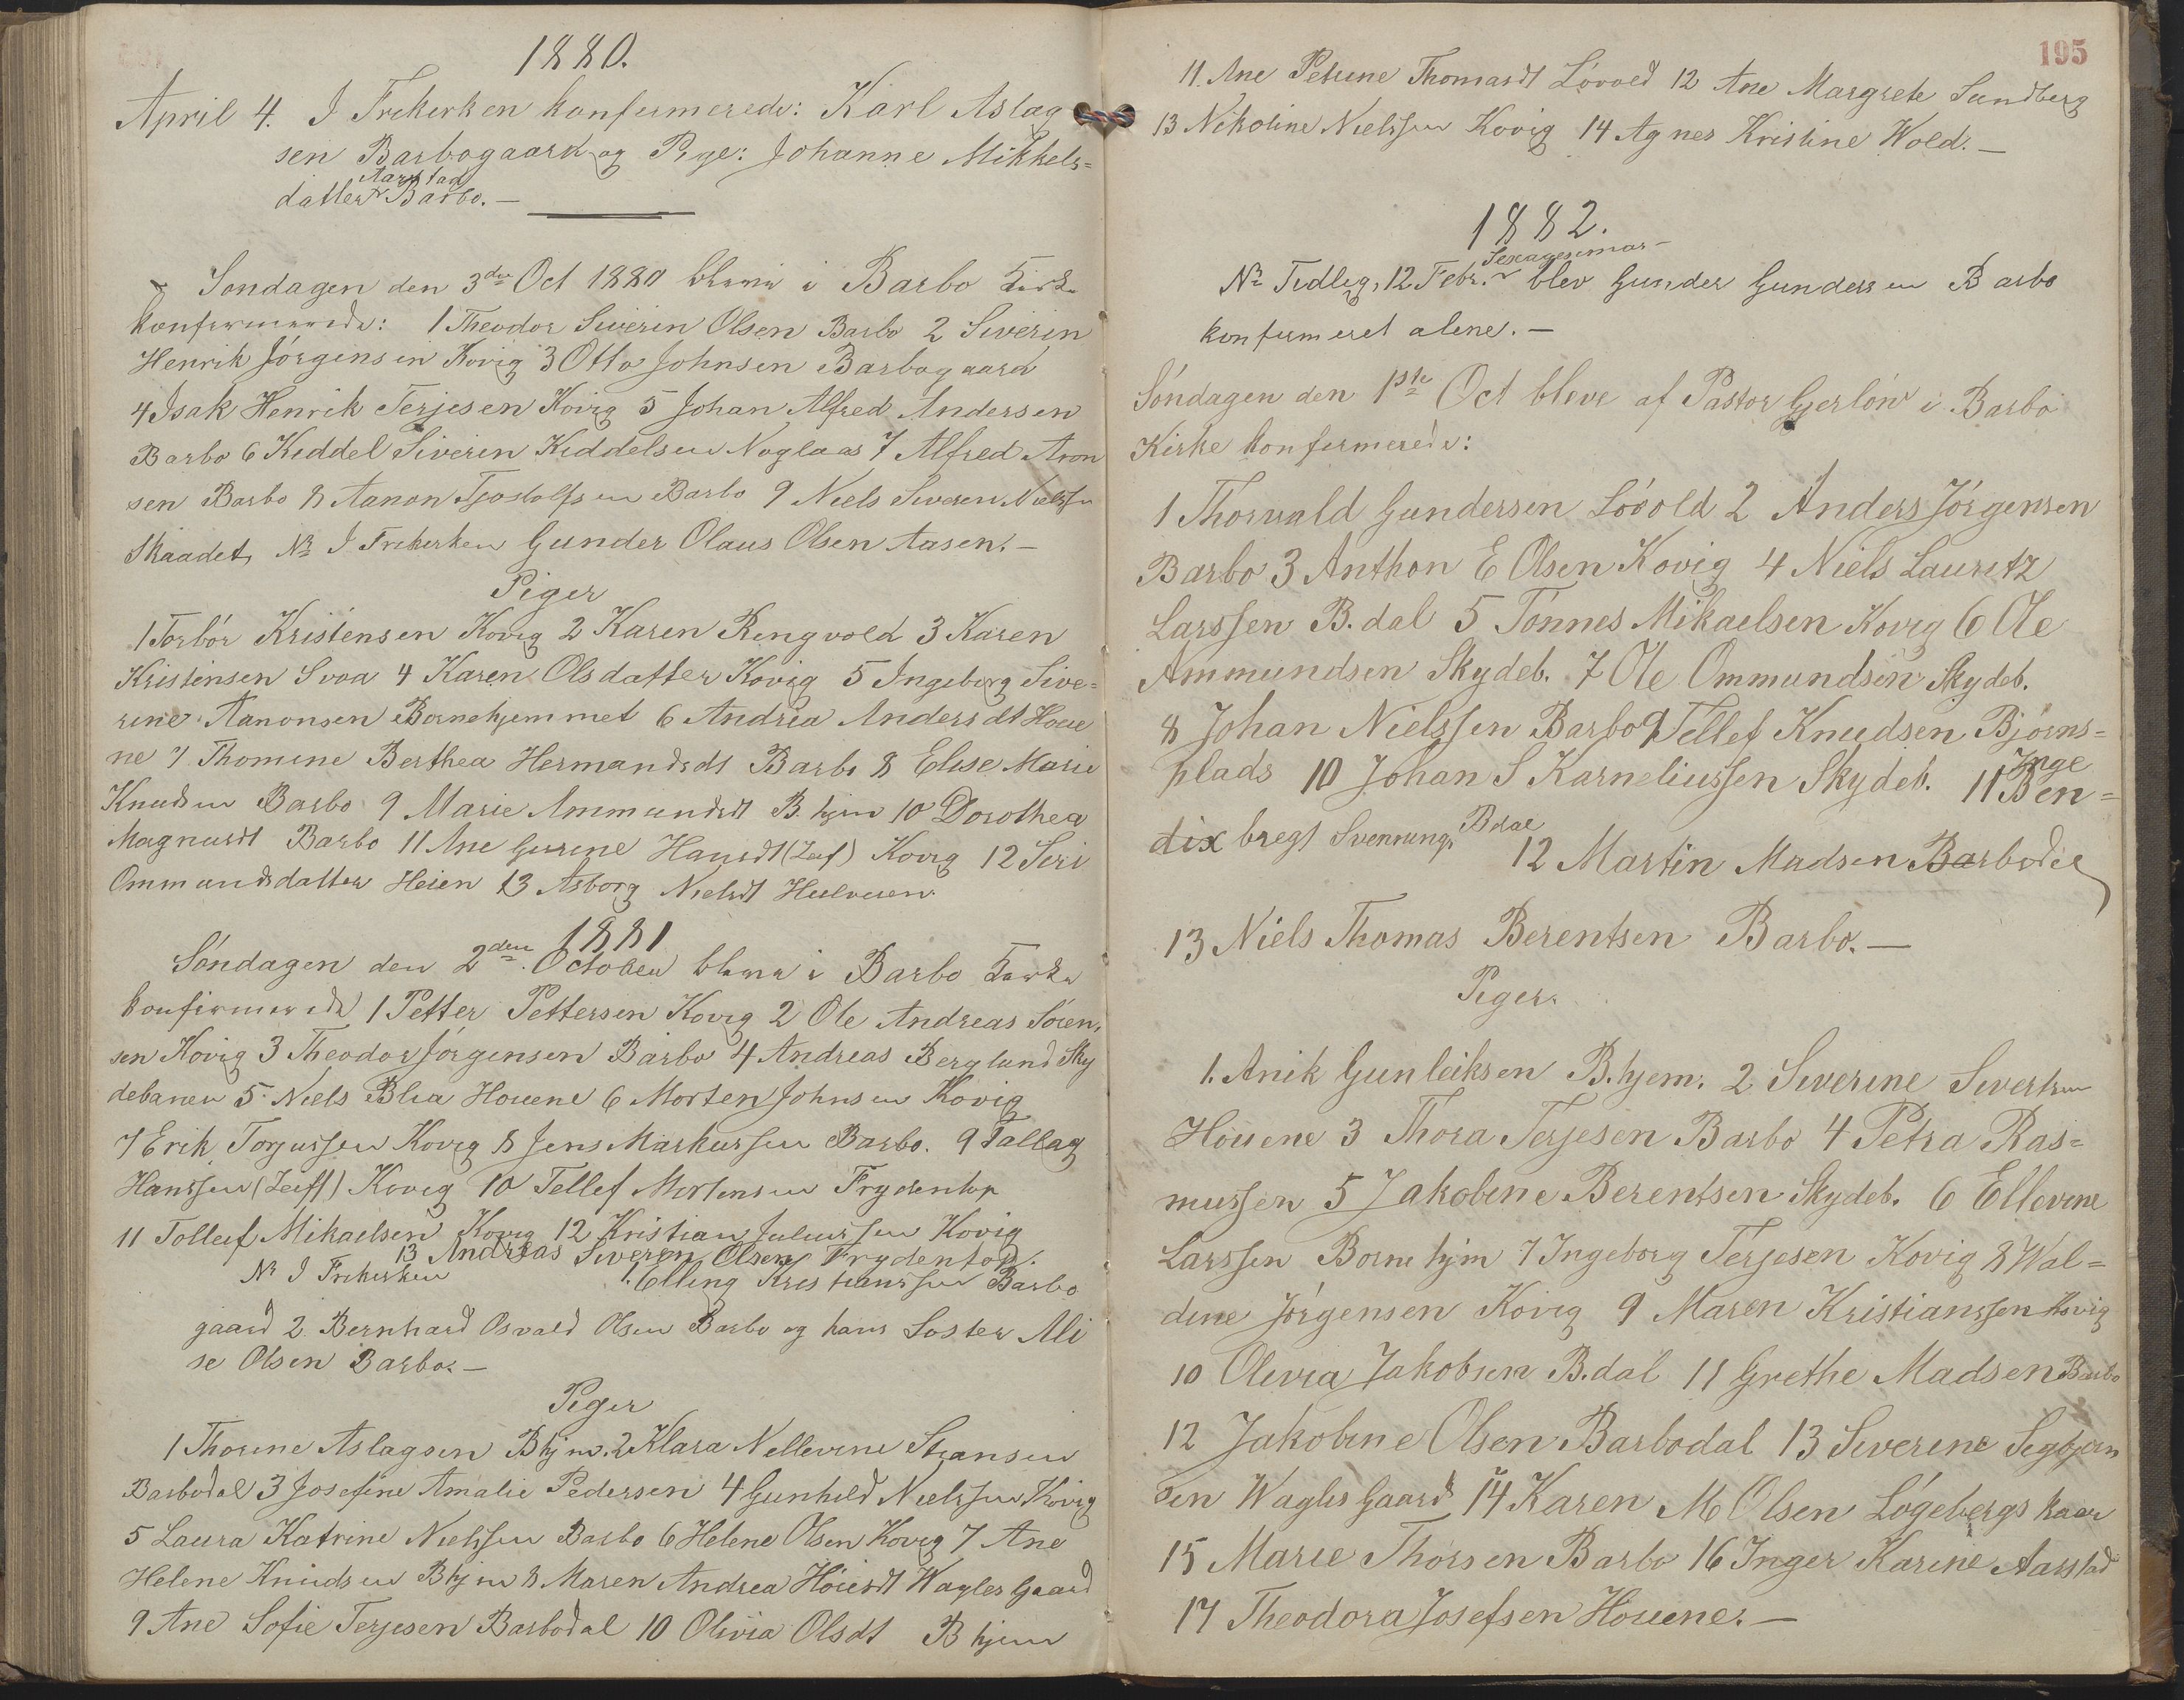 1880.
April 4. I Frikirken konfirmerede: Karl Aslag
sen Barbogaard og Pige: Johanne Mikkels=
Aarstad
datter Barbo. —
Søndagen den 3die Oct 1880 bleve i Barbo Kirke
konfirmerede: 1 Theodor Siverin Olsen Barbo 2 Siverin
Henrik Jörgensen Kovig 3 Otto Johnsen Barbogaard
4 Isak Henrik Terjesen Kovig 5 Johan Alfred Andersen
Barbo 6 Kiddel Siverin Kiddelsen Noglaas 7 Alfred Aron
sen Barbo 8 Aanon Tjostolfsen Barbo 9 Niels Siveren Nielsen
Skaadet, NB I Frikirken Gunder Olaus Olsen Aasen. —
Piger
1 Torbór Kristensen Kovig 2 Karen Ringvold 3 Karen
Kristensen Svoa 4 Karen Olsdatter Kovig 5 Ingeborg Sive=
rine Aanonsen Bornehjemmet 6 Andrea Andersdt Houe
ne 7 Thomine Berthea Hermandsdt Barbo 8 Elise Marie
Knudsen Barbo 9 Marie Ammundsdt B. hjem 10 Dorothea
Magnusdt Barbo 11 Ane Gurine Hansdt (Leif) Kovig 12 Siri
Ommundsdatter Heien 13 Asborg Nielsdt
1881
Söndagen den 2den October bleve i Barbo Kirke
konfirmerede 1 Petter Pettersen Kovig 2 Ole Andreas Sören,
sen Kovig 3 Theodor Jörgensen Barbo 4 Andreas Berglund Sky
debanen 5 Niels Blia Houene 6 Morten Johnsen Kovig
7 Erik Torjussen Kovig 8 Jens Markussen Barbo. 9 Tallag
Hanssen (Leiff) Kovig 10 Tellef Mortensen Frydentop
11 Tolleif Mikaelsen Kovig 12 Kristian Juliussen Kovig
13 Andreas Siveren Olsen Frydentop.
NB I Frikirken 1. Elling Kristianssen Barbo
gaard 2 Bernhard Osvald Olsen Barbo og hans Soster Ali
se Olsen Barbo. —
Piger
1 Thorine Aslagsen Bhjm. 2 Klara Nellevine Stiansen
Barbodal 3 Josefine Amalie Pedersen 4 Gunhild Nielssen Kovig
5 Laura Katrine Nielssen Barbo 6 Helene Olsen Kovig 7 Ane
Helene Knudsen Bhjm 8 Maren Andrea Höiesdt Wagles Gaard
9 Ane Sofie Terjesen Barbodal 10 Olivia Olsdt B hjem
195
11. Ane Petrine Thomasdt Lövold 12 Ane Margrete Sundberg
13 Nikoline Nielssen Kovig 14 Agnes Kristine Wold. —
1882.
Sexagesimas —
NB Tidlig, 12 Febr. blev Gunder Gundersen Barbo
konfirmeret alene. —
Söndagen den 1ste Oct bleve af Pastor Gjerlöw i Barbo
Kirke konfirmerede:
1 Thorvald Gundersen Lövold 2 Anders Jörgensen
Barbo 3 Anthon E Olsen Kovig 4 Niels Lauritz
Larssen B. dal 5 Tönnes Mikaelsen Kovig 6 Ole
Ammundsen Skydeb. 7 Ole Ommundsen Skydeb.
8 Johan Nielssen Barbo 9 Tellef Knudsen Bjórns=
plads 10 Johan S Karneliussen Skydeb. 11 Ben=
Inge
dix bregt Svennungs Bdal
12 Martin Madsen Barbodal
13 Niels Thomas Berentsen Barbo. —
Piger.
1. Anik Gunleiksen B.hjem. 2 Siverine Sivertsen
Houene 3 Thora Terjesen Barbo 4 Petra Ras=
mussen 5 Jakobine Berentsen Skydeb. 6 Ellevine
Larssen Bornehjm 7 Ingeborg Terjesen Kovig 8 Wal=
dine Jörgensen Kovig 9 Maren Kristianssen Kovig
10 Olivia Jakobsen B.dal 11 Grethe Madsen Barbo
12 Jakobine Olsen Barbodal 13 Siverine Segbjörn
sen Wagles Gaard 14 Karen M Olsen Lögebergs kaar
15 Marie Thorsen Barbo 16 Inger Karine Aarstad
17 Theodora Josefsen Houene. —